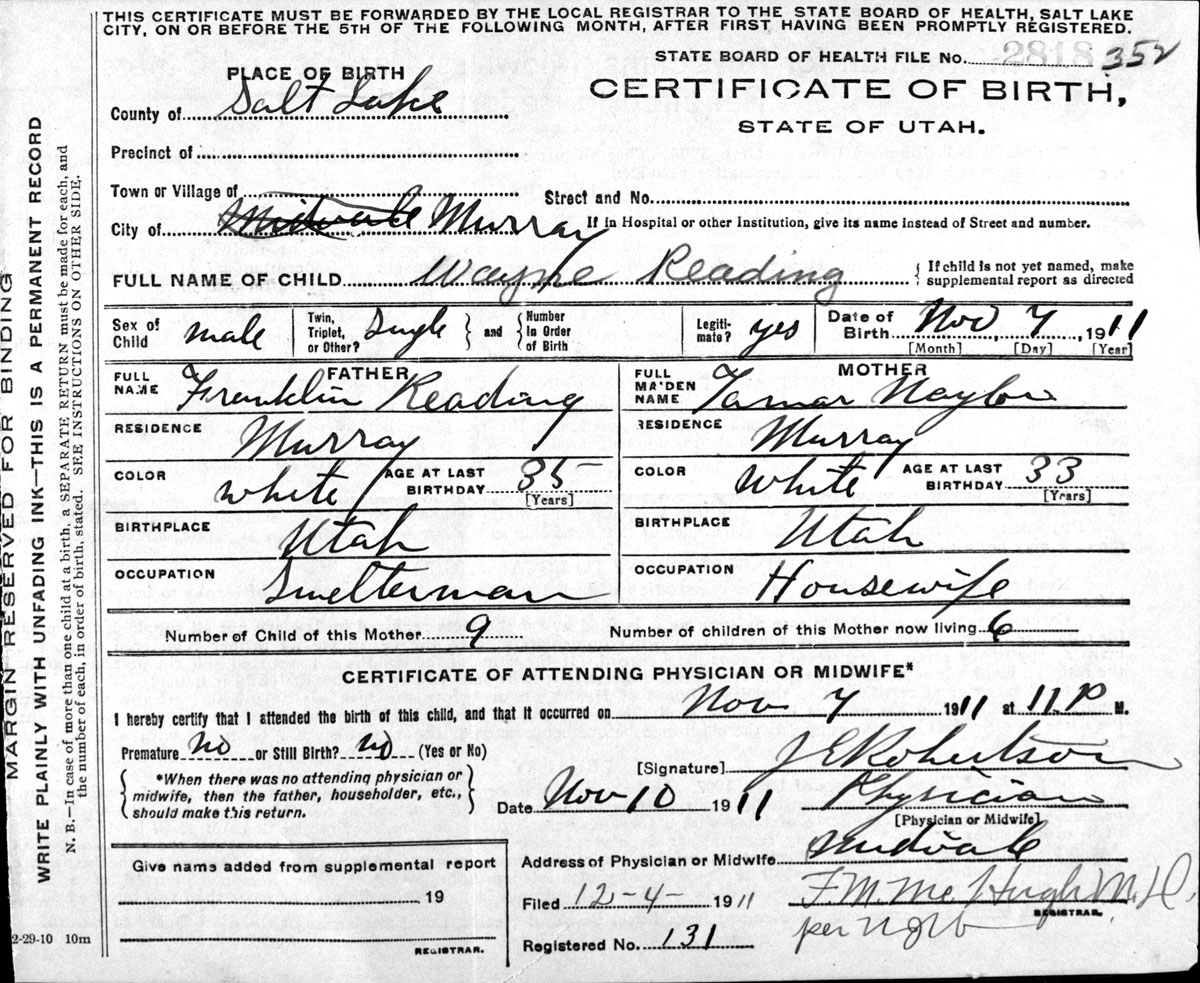 THIS CERTIFICATE MUST BE FORWARDED BY THE LOCAL REGISTRAR TO THE STATE BOARD OF HEALTH, SALT LAKE
CITY, ON OR BEFORE THE 5TH OF THE FOLLOWING MONTH, AFTER FIRST HAVING BEEN PROMPTLY REGISTERED.
STATE BOARD OF HEALTH FILE No. 2818 352
PLACE OF BIRTH
CERTIFICATE OF BIRTH,
County of Salt Lake
STATE OF UTAH.
Precinct of
Town or Village of
Street and No.
City of Midvale Murray
If in Hospital or other Institution, give its name instead of Street and number.
FULL NAME OF CHILD Wayne Reading
{ If child is not yet named, make
supplemental report as directed
Sex of Child male
Twin, Triplet, or Other? Single } and { Number In Order of Birth
Legiti-mate? yes
Date of Birth Nov 7, 1911
[Month] [Day] [Year]
FATHER
FULL NAME Franklin Reading
MOTHER
FULL MAIDEN NAME Tamar Naylor
RESIDENCE Murray
RESIDENCE Murray
COLOR white AGE AT LAST BIRTHDAY 35 [Years]
COLOR White AGE AT LAST BIRTHDAY 33 [Years]
BIRTHPLACE Utah
BIRTHPLACE Utah
OCCUPATION Smelterman
OCCUPATION Housewife
Number of Child of this Mother 9
Number of children of this Mother now living 6
CERTIFICATE OF ATTENDING PHYSICIAN OR MIDWIFE*
I hereby certify that I attended the birth of this child, and that it occurred on Nov 7 1911 at 11 P M.
Premature no or Still Birth? no (Yes or No)
[Signature] J E Robertson
{ *When there was no attending physician or
midwife, then the father, householder, etc.,
should make this return. }
Date Nov 10 1911 Physician
[Physician or Midwife]
Give name added from supplemental report
19
REGISTRAR.
Address of Physician or Midwife Midvale
Filed 12-4- 1911 F. M. McHugh M.D.
REGISTRAR.
per
Registered No. 131
2-29-10 10m
MARGIN RESERVED FOR BINDING
WRITE PLAINLY WITH UNFADING INK—THIS IS A PERMANENT RECORD
N. B.—In case of more than one child at a birth, a SEPARATE RETURN must be made for each, and
the number of each, in order of birth, stated. SEE INSTRUCTIONS ON OTHER SIDE.